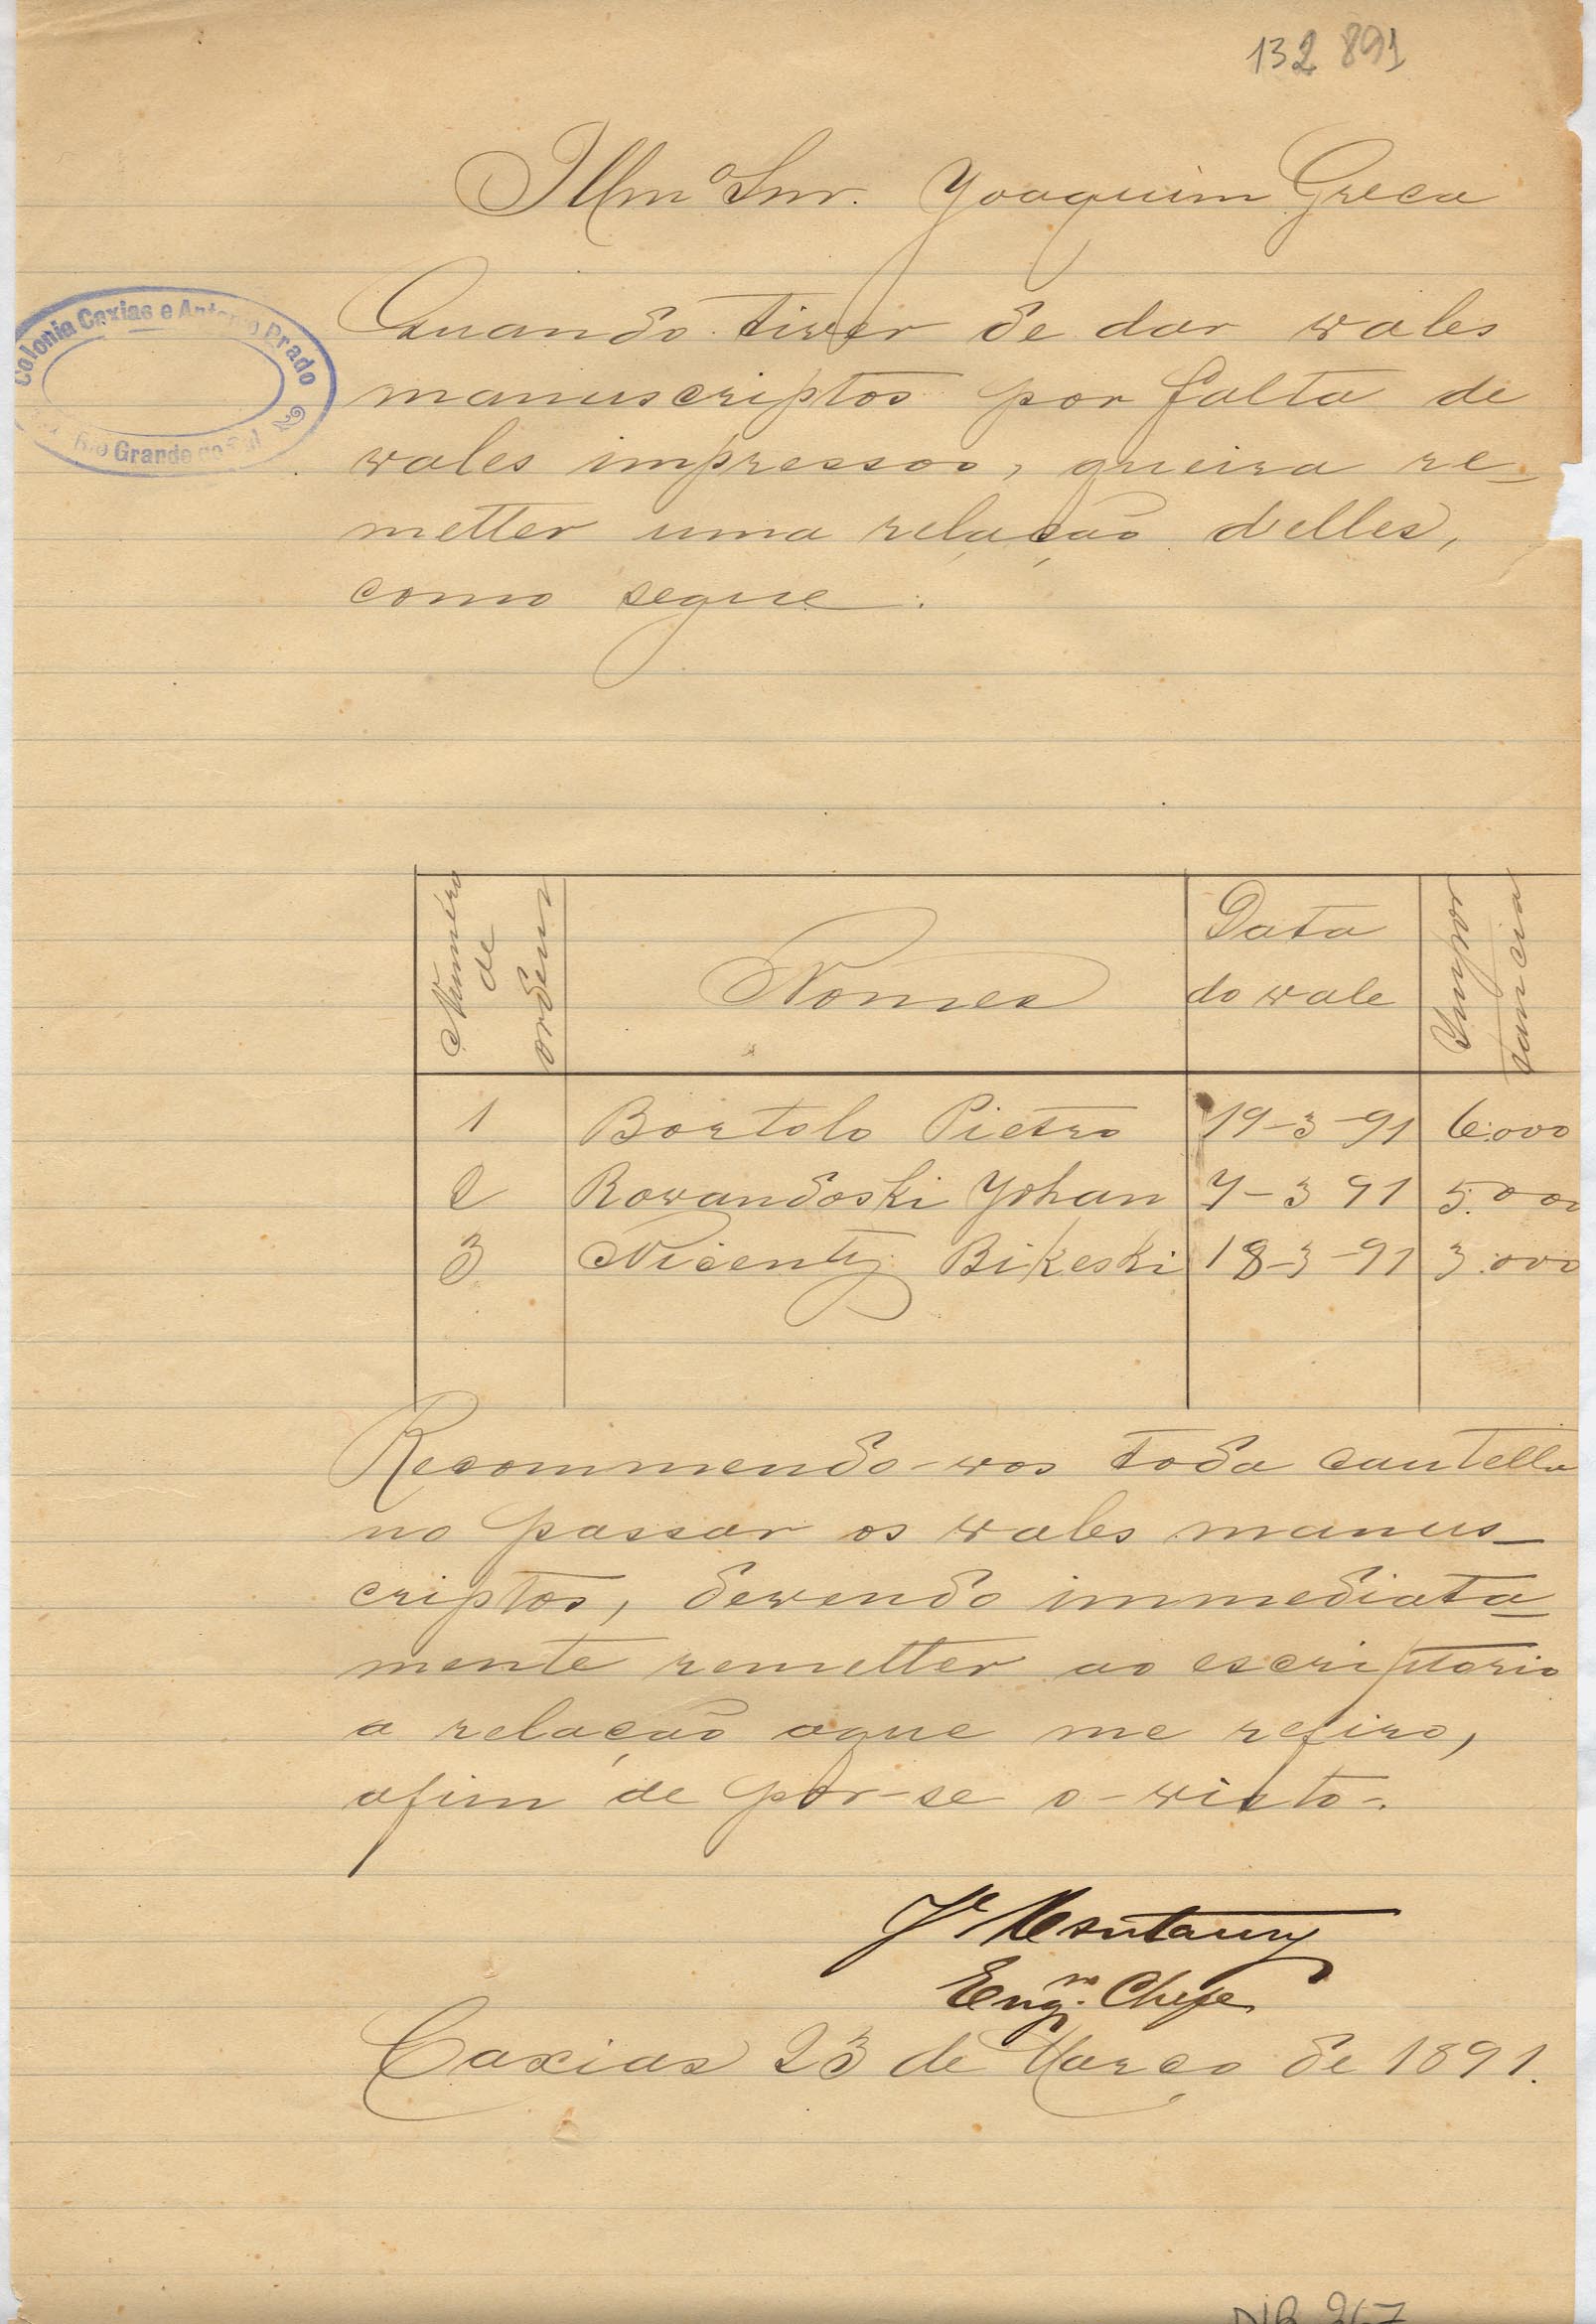 132 891
Illmº Snr. Joaquim Greca
Colonia Caxias e Antonio Prado
Rio Grande do Sul
Quando tiver de dar vales
manuscriptos por falta de
vales impressos, queira re-
metter uma relação delles,
como segue:
Numéro de ordem Nomes Data do vale Importancia
1 Bortolo Pietro 19-3-91 6:000
2 Rovandoski Johan 7-3 91 5:000
3 Vicenty Bikeski 18-3-91 3:000
Recommendo-vos toda cautella
no passar os vales manus-
criptos, devendo immediata-
mente remetter ao escriptorio
a relação aque me refiro,
afim de por-se o-visto-.
Je Montaury
Engro. Chefe
Caxias 23 de Março de 1891.